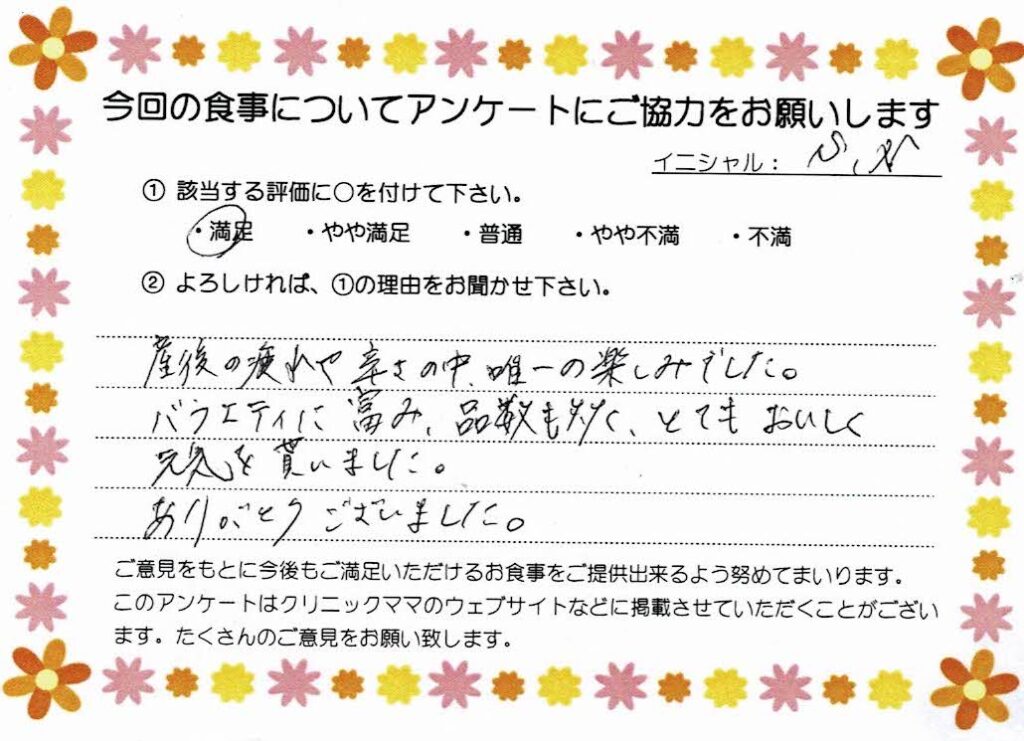 今回の食事についてアンケートにご協力をお願いします
イニシャル：
① 該当する評価に○を付けて下さい。
・満足 ・やや満足 ・普通 ・やや不満 ・不満
② よろしければ、①の理由をお聞かせ下さい。
産後の疲れや辛さの中、唯一の楽しみでした。
バラエティに富み、品数も多く、とてもおいしく
元気を貰いました。
ありがとうございました。
ご意見をもとに今後もご満足いただけるお食事をご提供出来るよう努めてまいります。
このアンケートはクリニックママのウェブサイトなどに掲載させていただくことがござい
ます。たくさんのご意見をお願い致します。